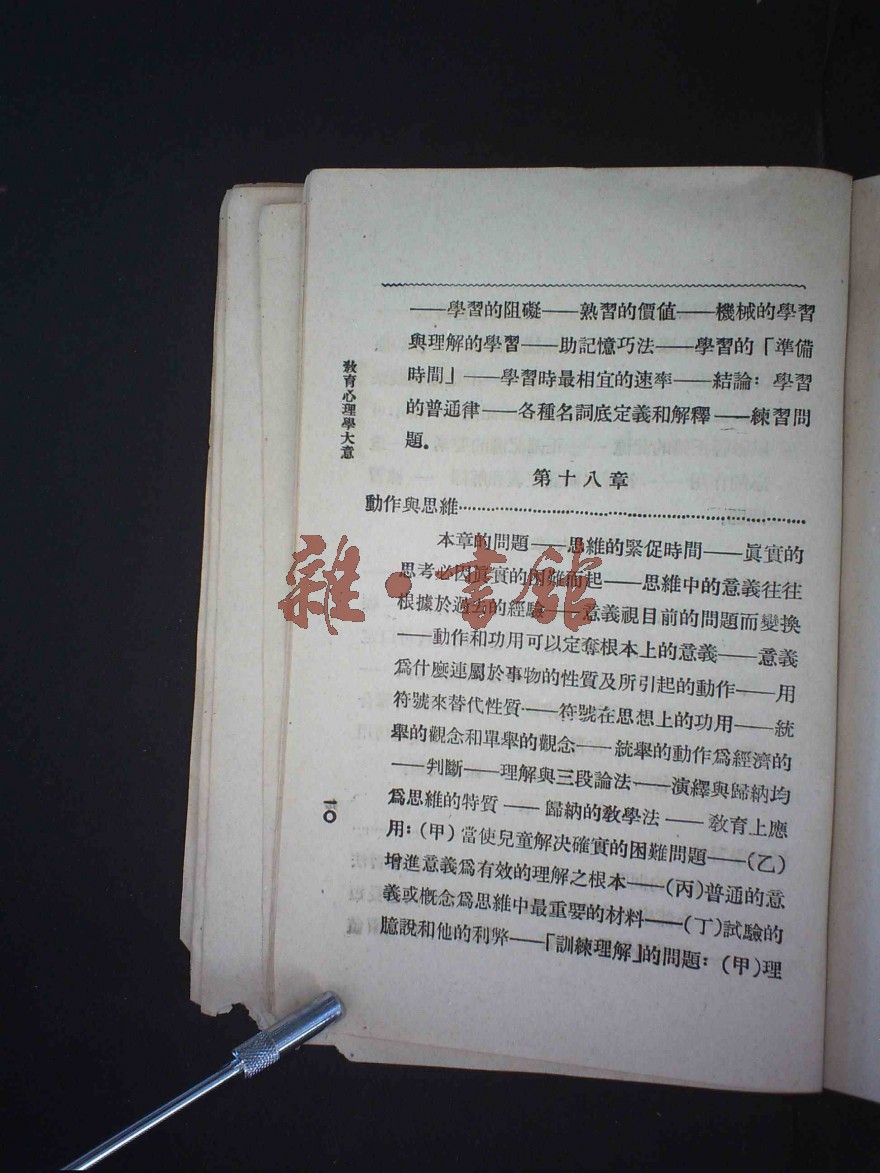 ——學習的阻礙——熟習的價値——機械的學習
與理解的學習——助記憶巧法——學習的「準備
時間」——學習時最相宜的速率——結論：學習
的普通律——各種名詞底定義和解釋——練習問
題。
教育心理學大意
第十八章
動作與思維……………………………………
本章的問題——思維的緊促時間——眞實的
思考必因眞實的困難而起——思維中的意義往往
根據於過去的經驗——意義視目前的問題而變換
——動作和功用可以定奪根本上的意義——意義
爲什麼連屬於事物的性質及所引起的動作——用
符號來替代性質——符號在思想上的功用——統
舉的觀念和單舉的觀念——統舉的動作爲經濟的
——判斷——理解與三段論法——演繹與歸納均
爲思維的特質——歸納的敎學法——敎育上應
用：(甲)當使兒童解决確實的困難問題——(乙)
增進意義爲有效的理解之根本——(丙)普通的意
義或概念爲思維中最重要的材料——(丁)試驗的
臆說和他的利弊——「訓練理解」的問題：(甲)理
一〇
雜·書館